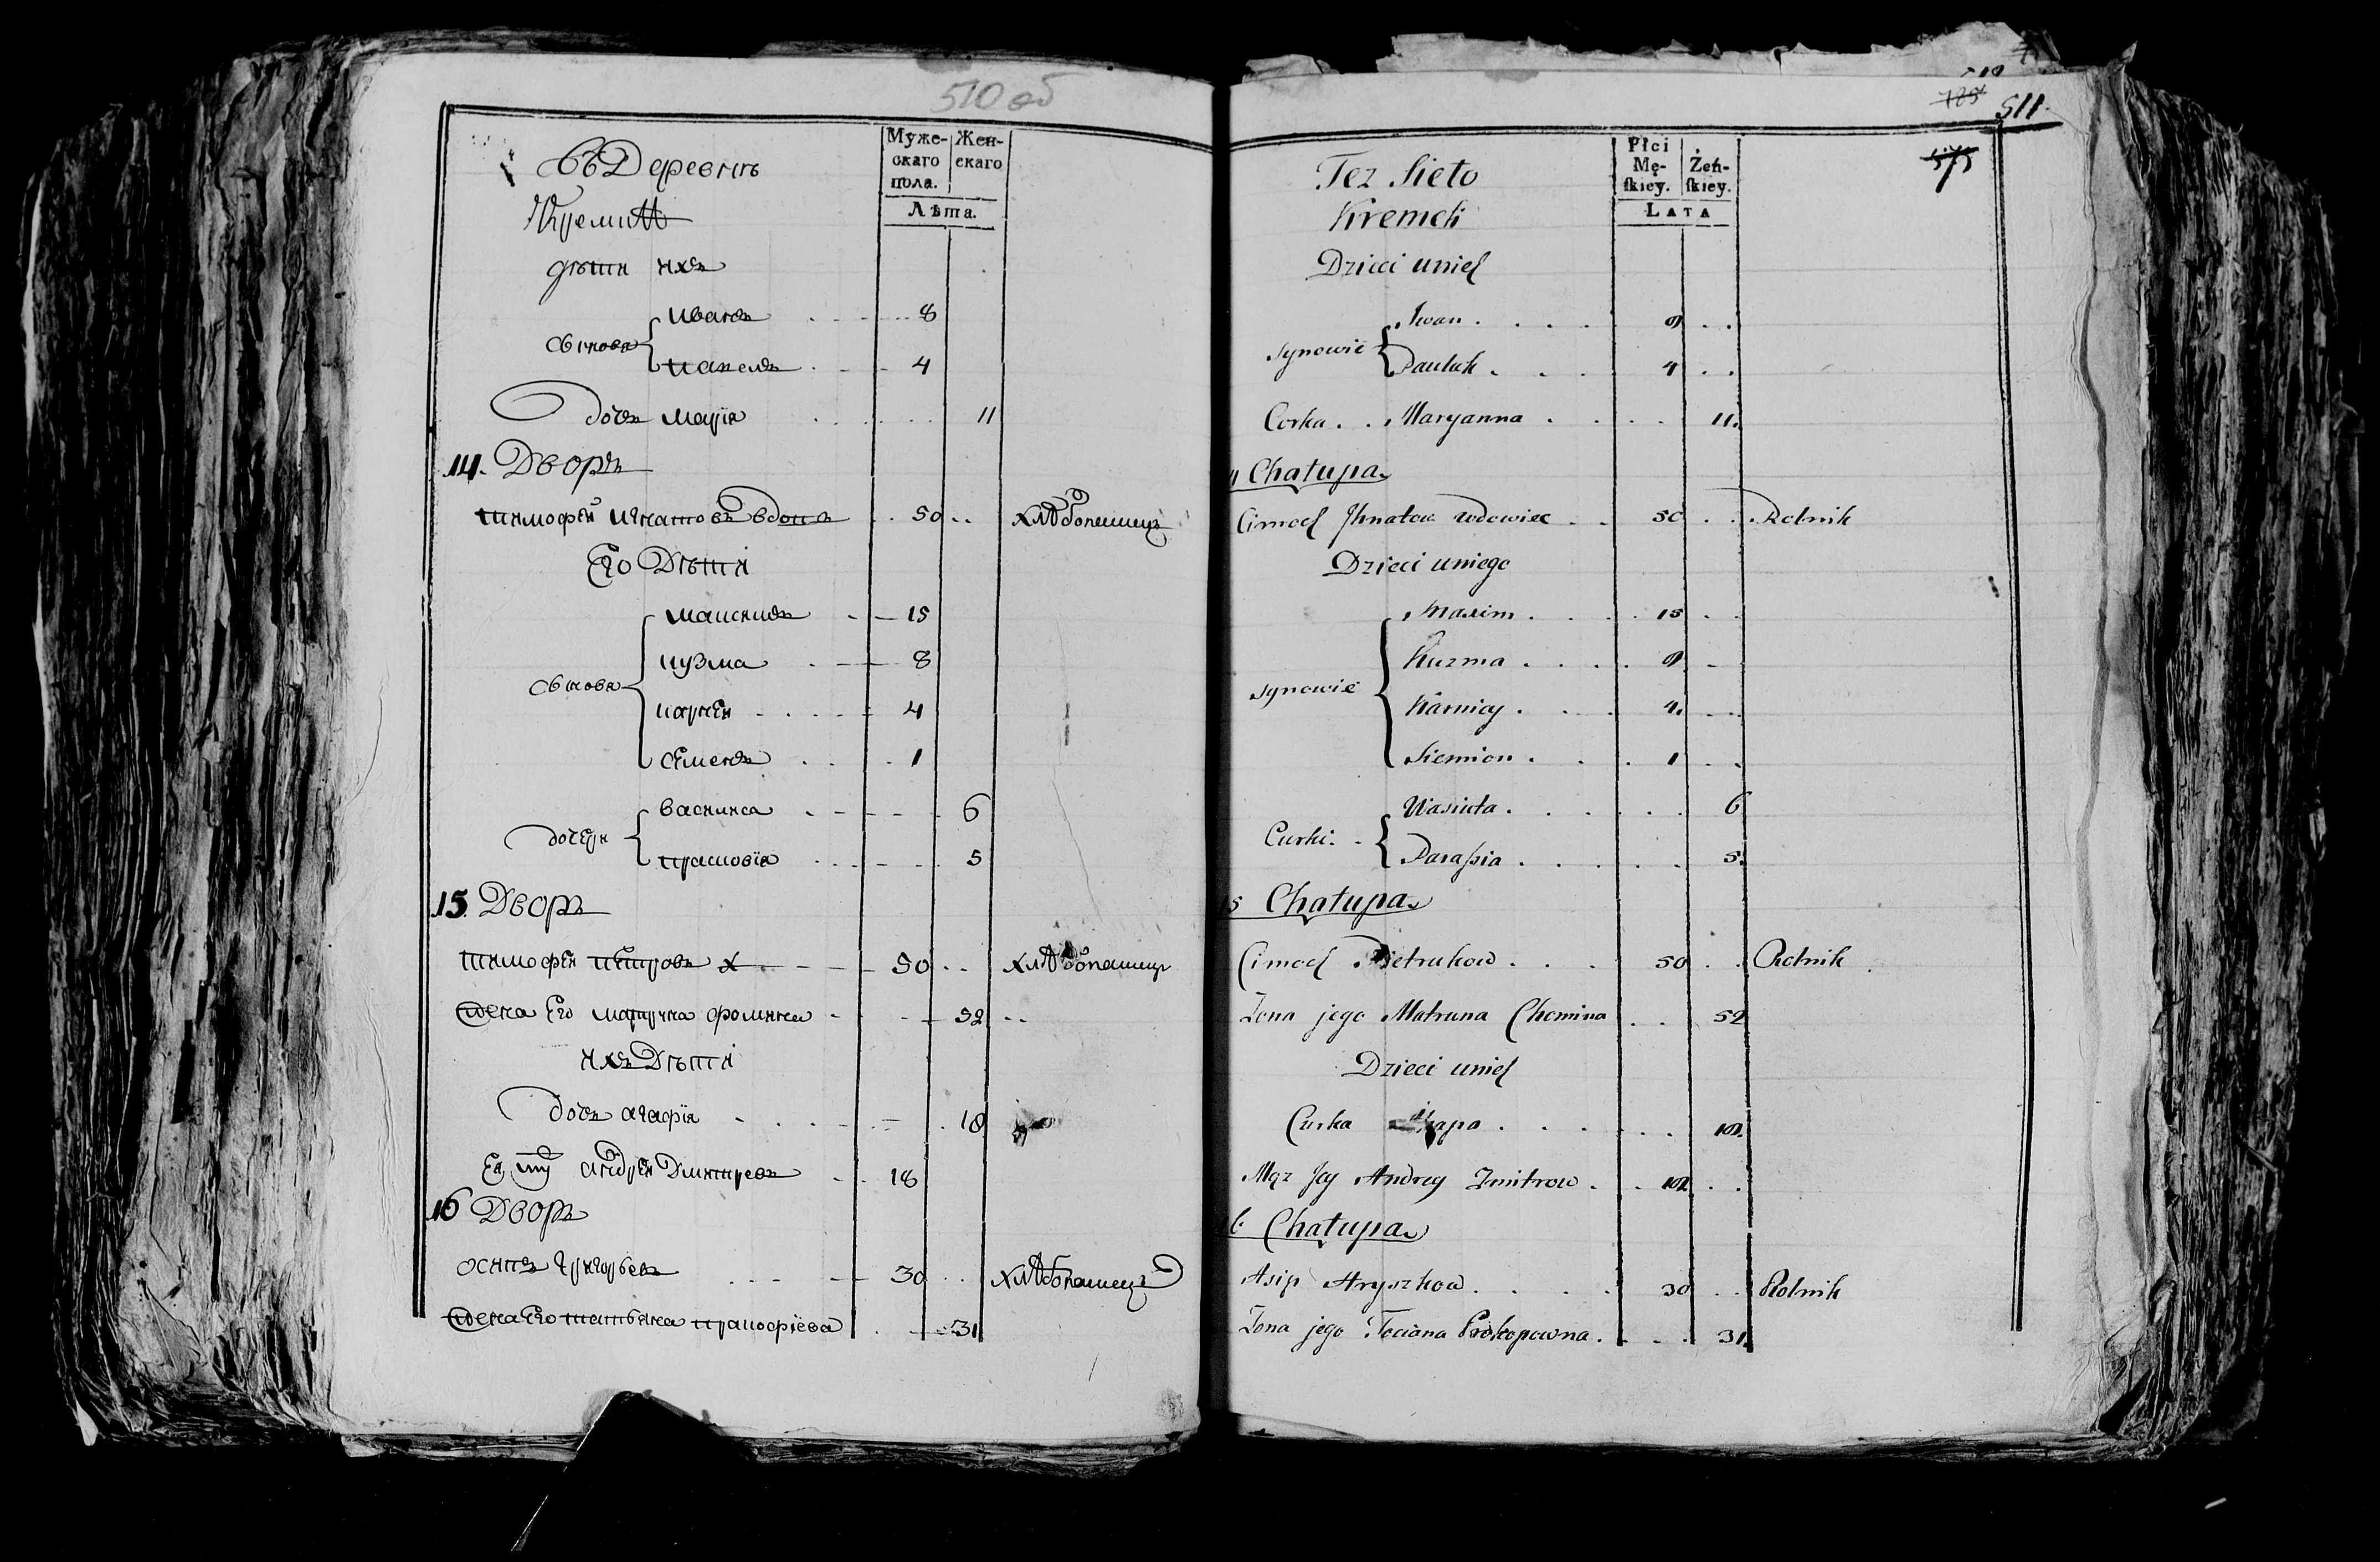 510 об
Муже-
скаго
пола.
Жен-
скаго
Лѣта.
въ Деревнѣ
дѣти ихъ
Сынове
иванъ 8
павелъ 4
дочь марія 11
14. Дворъ
тимофей игнатовъ вдовъ 50 хлѣбопашецъ
Его Дѣти
Сынове
максимъ 15
кузма 8
карнѣй 4
семенъ 1
дочери
василиса 6
прасковія 5
15 Дворъ
тимофѣй петровъ 50 хлѣбопашецъ
жена Его матруна фомина 52
ихъ Дѣти
дочь агафія 18
Ея му андрѣй Дмитревъ 18
16 Дворъ
осипъ григорьевъ 30 хлѣбопашецъ
жена Его татьяна 31
511.
575
Płci
Mę-
skiey.
Żeń-
skiey.
LATA
Też Sieło
Dzieci unich
synowie
Iwan 8
Pauluk 4
Corka Maryanna 11.
Chałupa
Cimoch Ihnatow wdowiec 50 Rolnik
Dzieci uniego
synowie
Maxim 15
Kuzma 8
Karniey 4.
Siemion 1
Curki
Wasiuta 6
Paraſsia 5.
5 Chałupa
Cimoch Pietrukow 50 Rolnik
Zona jego Matruna Chomina 52
Dzieci unich
Curka 18.
Mąz Jey Andrey Zmitrow 18
6. Chałupa
Asip Hryszkow 30 Rolnik
Zona jego Taciana Prokopowna 31.